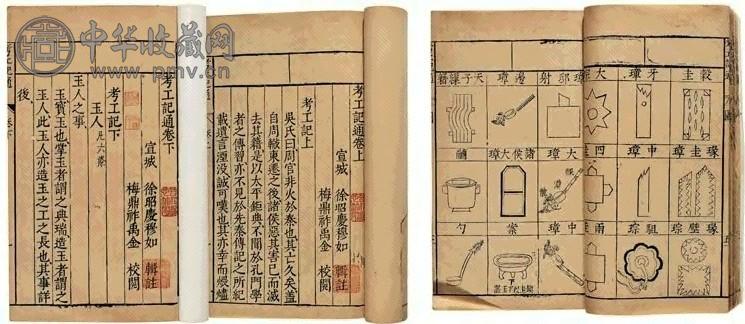 中华收藏网
www.pmv.cn
考工記通卷下
宣城 徐昭慶穆如 輯註
梅鼎祚禹金 校閱
考工記下
玉人
玉人之事
玉實玉也掌玉者謂之典瑞造玉者謂之
玉人此玉人亦造玉之工之長也其事詳
後
考工記通卷上
宣城 徐昭慶穆如 輯註
梅鼎祚禹金 校閱
考工記上
吳氏曰周官非火於秦也其亡久矣蓋
自周轍東遷之後諸侯惡其害己而滅
去其籍是以太平鉅典不聞於孔門學
者之傳習亦不見於先秦傳記之所紀
載遺言湮没誠可嘆也其亦幸而
穀圭
牙璋
大琮
射
邊璋
天子繅藉
瑑圭璋
中璋
四
大璋
諸侯大璋
瑑璧琮
駔琮
中璋
案
勺